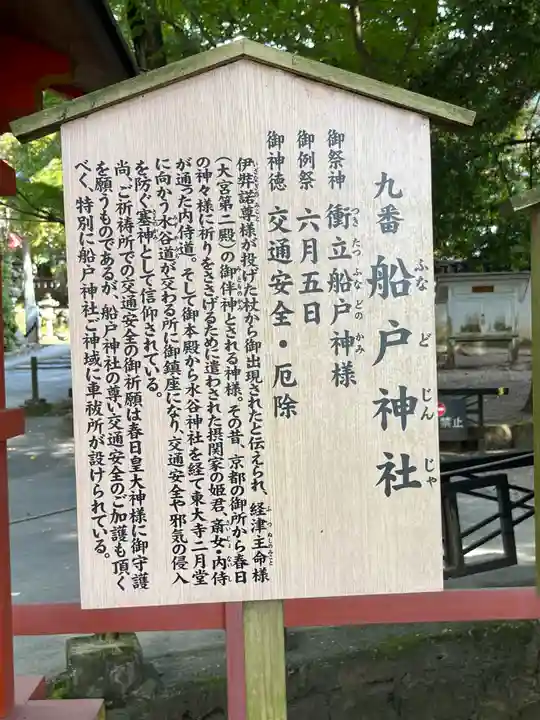 九番 船戸神社
ふな ど じん じゃ
御祭神 衝立船戸神様
つき たつ ふな どの かみ
御例祭 六月五日
御神徳 交通安全・厄除
伊弉諾尊様が投げた杖から御出現されたと伝えられ、経津主命様
(大宮第二殿)の御伴神とされる神様。その昔、京都の御所から春日
の神々様に祈りをささげるために遣わされた摂関家の姫君、斎女・内侍
が通った内侍道。そして御本殿から水谷神社を経て東大寺二月堂
に向かう水谷道が交わる所に御鎮座になり、交通安全や邪気の侵入
を防ぐ塞神として信仰されている。
尚、ご祈祷所での交通安全の御祈願は春日皇大神様に御守護
を願うものであるが、船戸神社の尊い交通安全のご加護も頂く
べく、特別に船戸神社ご神域に車祓所が設けられている。
禁止